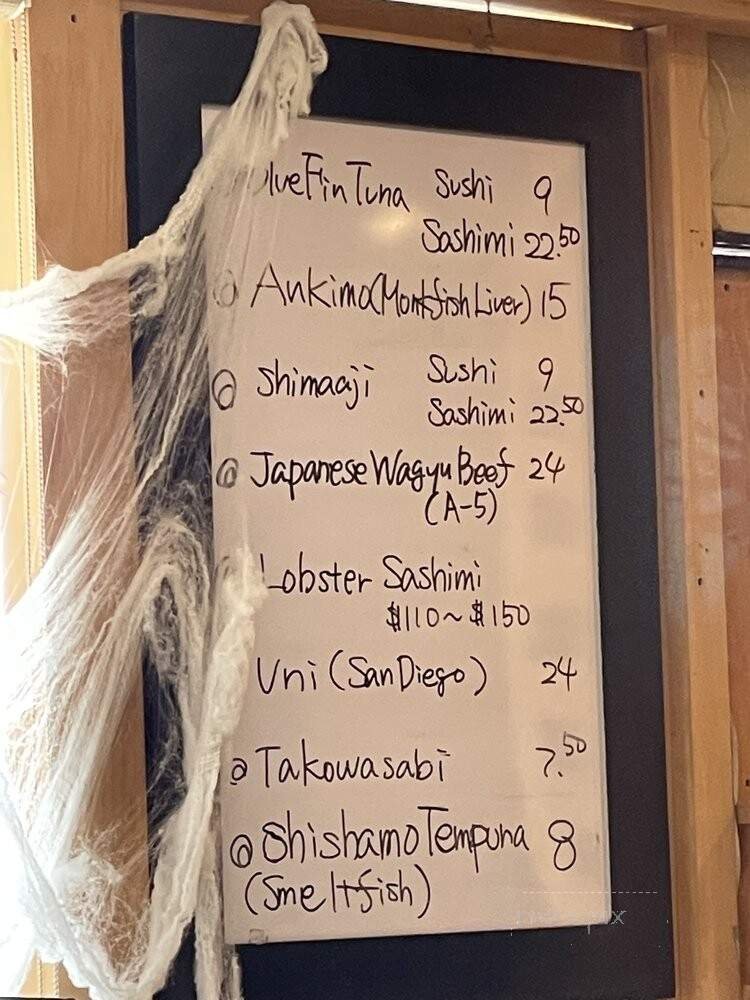 BlueFin Tuna Sushi 9
Sashimi 22.50
Ankimo(Monkfish Liver) 15
Shimaaji Sushi 9
Sashimi 22.50
Japanese Wagyu Beef 24
(A-5)
Lobster Sashimi
$110~$150
Uni (San Diego) 24
Takowasabi 7.50
Shishamo Tempura 8
(Smeltfish)